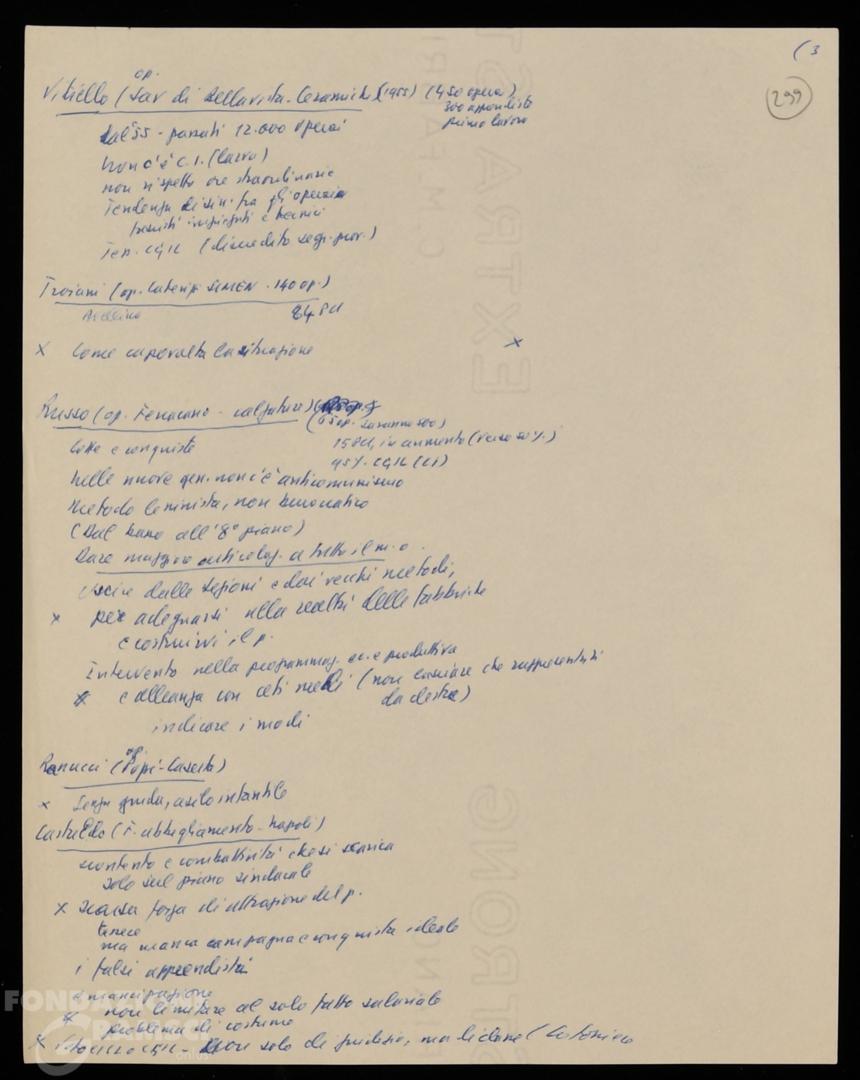 (3
299
op.
Vitiello (Sav di Bellavista - Ceramiche) (1955) (450 operai)
300 apprendisti
primo lavoro
Dal 55 - passati 12.000 operai
Non c'è C.I. (
non rispetto ore straordinarie
Tendenza di sin. fra gli operai
tecnici impiegati e tecnici
Ten. CGIL (discredito segr. prov.)
Troiani (op. Laterizi SIMEN - 140 op.)
Avellino 84 PCI
x Come capovolta la situazione x
Russo (op. - calzature)
(65 op. saranno 500)
Lotte e conquiste 15 PCI, in aumento (verso 50%)
95% CGIL (CI)
Nelle nuove gen. non c'è anticomunismo
Metodo leninista, non burocratico
(Dal basso all'8° piano)
Dare maggiore articolaz. a tutto il m.o.
uscire dalle sezioni e dai vecchi metodi,
x per adeguarsi alla realtà delle fabbriche
e costruirvi il p.
Intervento nella programmaz. ec. e produttiva
x e alleanza con ceti medi (non lasciare che rappresentati
da destra)
indicare i modi
op.
Ranucci ( - Caserta)
x Senza guida, asilo infantile
Castaldo (F. abbigliamento - Napoli)
scontento e combattività che si scarica
solo sul piano sindacale
x scarsa forza di attrazione del p.
tenere
ma manca campagna e conquista ideale
i falsi apprendisti
emancipazione
x non limitare al solo fatto salariale
problema di costume
x CGIL - non solo di giudizio, ma di
FONDAZIONE
GRAMSCI
onlus
EXTRA ST
C. M. FA
STRONG